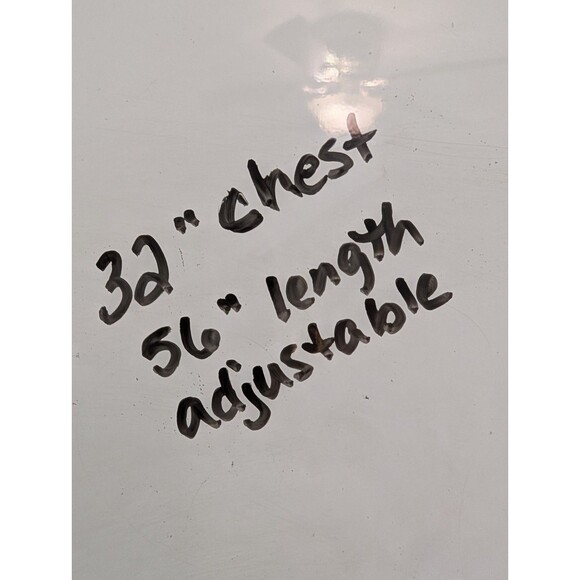 32" chest
56" length
adjustable